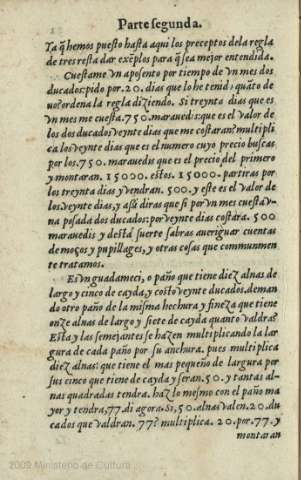 Parte segunda.
Ya q̃ hemos puesto hasta aqui los preceptos dela regla
de tres resta dar exẽplos para q̃ sea mejor entendida.
Cuestame vn aposento por tiempo de vn mes dos
ducados: pido por .20. dias que lo he tenido; quãto de
uo? ordena la regla diziendo. Si treynta dias que es
vn mes me cuesta .750. marauedis: que es el valor de
los dos ducados veynte dias que me costaran? multipli
ca los veynte dias que es el numero cuyo precio buscas
por los .750. marauedis que es el precio del primero
y montaran. 15000. estos. 15000. partiras por
los treynta dias y vendran. 500. y este es el valor de
los veynte dias, y assi diras que si por vn mes cuesta v-
na posada dos ducados: por veynte dias costara. 500
marauedis y desta suerte sabras aueriguar cuentas
de moços y pupillages, y otras cosas que communmen
te tratamos.
Es vn guadameci, o paño que tiene diez alnas de
largo y cinco de cayda, y costo veynte ducados. deman
do otro paño de la misma hechura y fineza que tiene
onze alnas de largo y siete de cayda quanto valdra?
Esta y las semejantes se hazen multiplicando la lar
gura de cada paño por su anchura. pues multiplica
diez alnas: que tiene el mas pequeño de largura por
sus cinco que tiene de cayda y seran. 50. y tantas al-
nas quadradas tendra. haz lo mesmo con el paño ma
yor y tendra, 77. di agora. Si, 50. alnas valen. 20. du-
cados que valdran. 77? multiplica. 20. por. 77. y
montaran
2009 Ministerio de Cultura